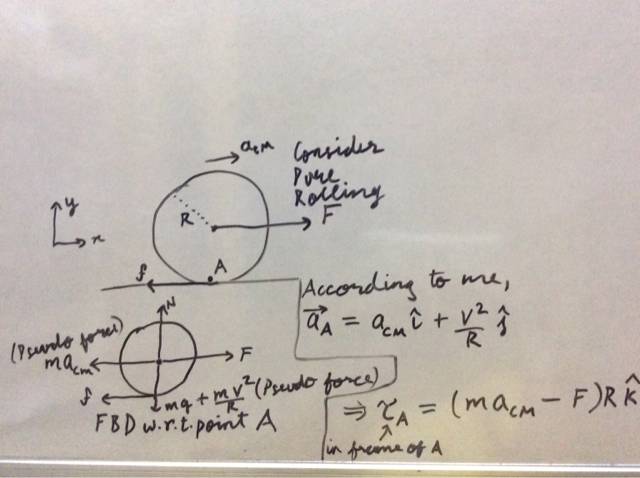 a_CM
Consider
Pure
Rolling
F
R
y
x
f
A
According to me,
\vec{a}_A = a_{CM} î + \frac{v^2}{R} ĵ
N
(Pseudo force)
ma_{CM}
F
f
mg + \frac{mv^2}{R} (Pseudo force)
FBD w.r.t. point A
⇒ τ_A = (ma_{CM} − F)R k̂
in frame of A